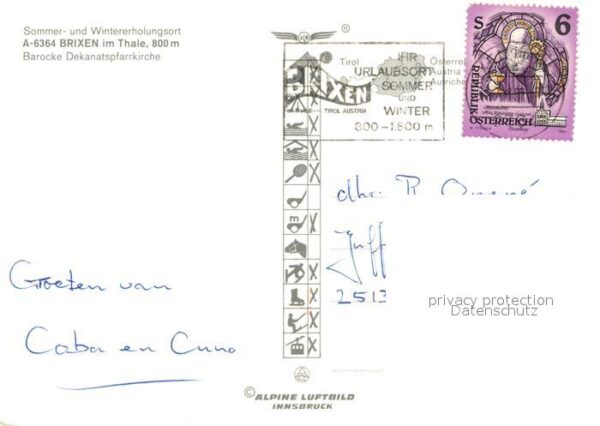 Sommer- und Wintererholungsort
A-6364 BRIXEN im Thale, 800 m
Barocke Dekanatspfarrkirche
Tirol
BRIXEN
TIROL AUSTRIA
IHR
URLAUBSORT
SOMMER
UND
WINTER
800-1.800 m
Österreich
Austria
Autriche
S 6
REPUBLIK
ÖSTERREICH
dhr. R.
Juff
2513
Groeten van
Coba en Cuno
privacy protection
Datenschutz
© ALPINE LUFTBILD
INNSBRUCK